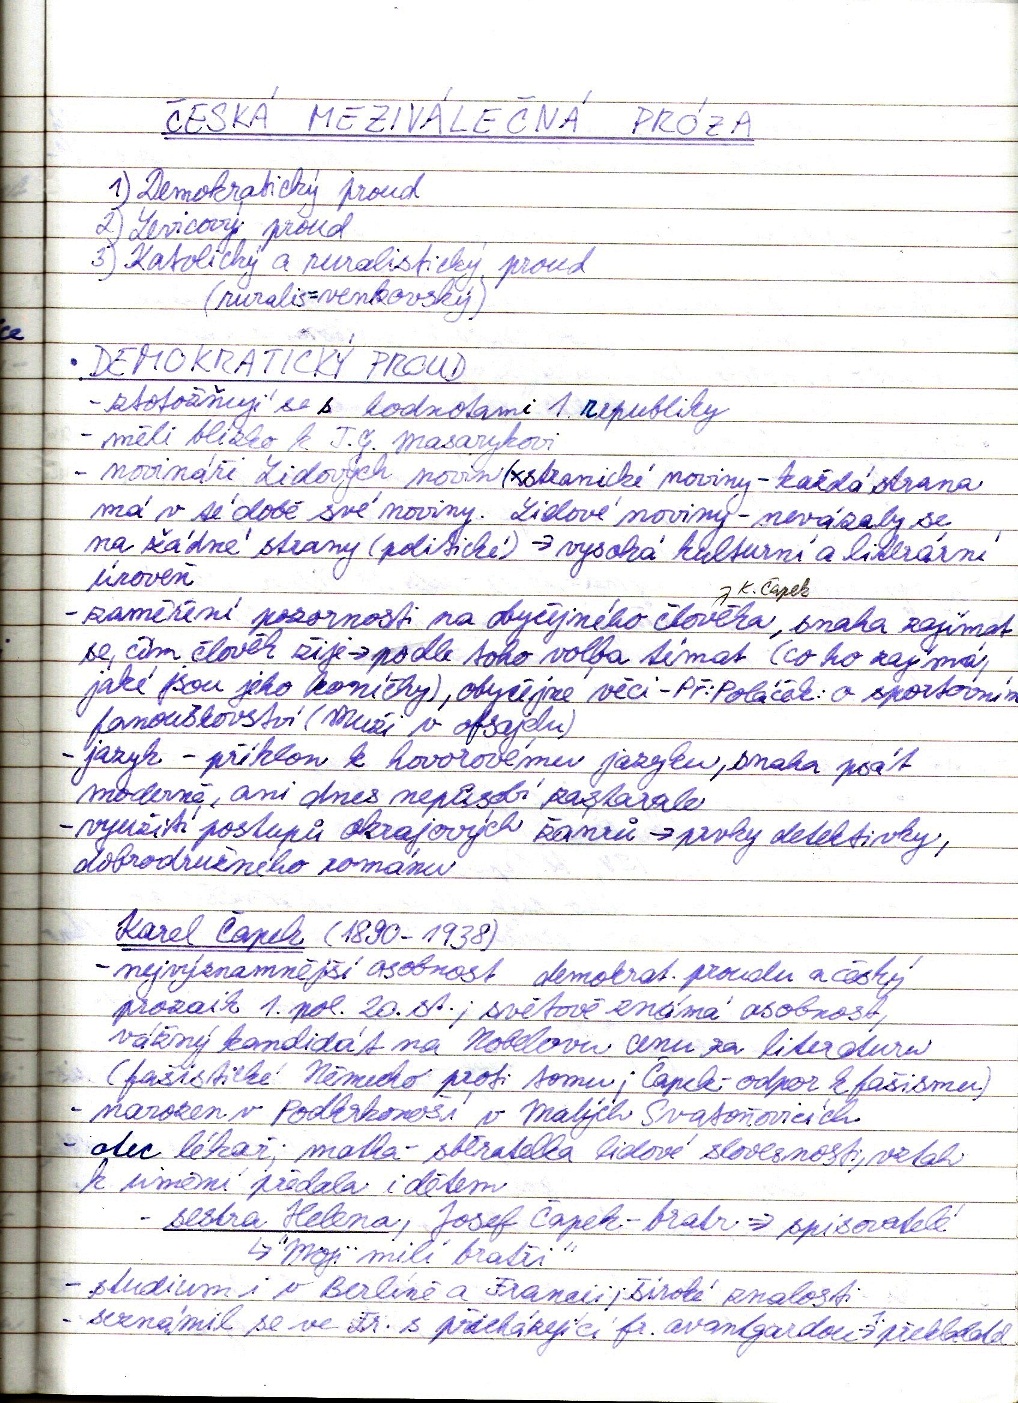 ČESKÁ MEZIVÁLEČNÁ PRÓZA
1) Demokratický proud
2) Levicový proud
3) Katolický a ruralistický proud
(ruralis=venkovský)
• DEMOKRATICKÝ PROUD
- ztotožňují se s hodnotami 1. republiky
- měli blízko k T.G. Masarykovi
- novináři Lidových novin (x stranické noviny - každá strana
má v té době své noviny. Lidové noviny - nevázaly se
na žádné strany (politické) → vysoká kulturní a literární
úroveň
→ K. Čapek
- zaměření pozornosti na obyčejného člověka, snaha zajímat
se, čím člověk žije → podle toho volba témat (co ho zajímá,
jaké jsou jeho koníčky), obyčejné věci - Př: Poláček: o sportovním
fanouškovství (Muži v ofsajdu)
- jazyk - příklon k hovorovému jazyku, snaha psát
moderně, ani dnes nepůsobí zastarale
- využití postupů okrajových žánrů → prvky detektivky,
dobrodružného románu
Karel Čapek (1890-1938)
- nejvýznamnější osobnost demokrat. proudu a český
prozaik 1. pol. 20. st.; světově známá osobnost,
vážný kandidát na Nobelovu cenu za literaturu
(fašistické Německo proti tomu; Čapek - odpor k fašismu)
- narozen v Podkrkonoší, v Malých Svatoňovicích
- otec lékař; matka - sběratelka lidové slovesnosti, vztah
k umění předala i dětem
- sestra Helena, Josef Čapek - bratr ⇒ spisovatelé
↳ "Moji milí bratři"
- studium i v Berlíně a Francii; široké znalosti
- seznámil se ve Fr. s přicházející fr. avantgardou → překládal